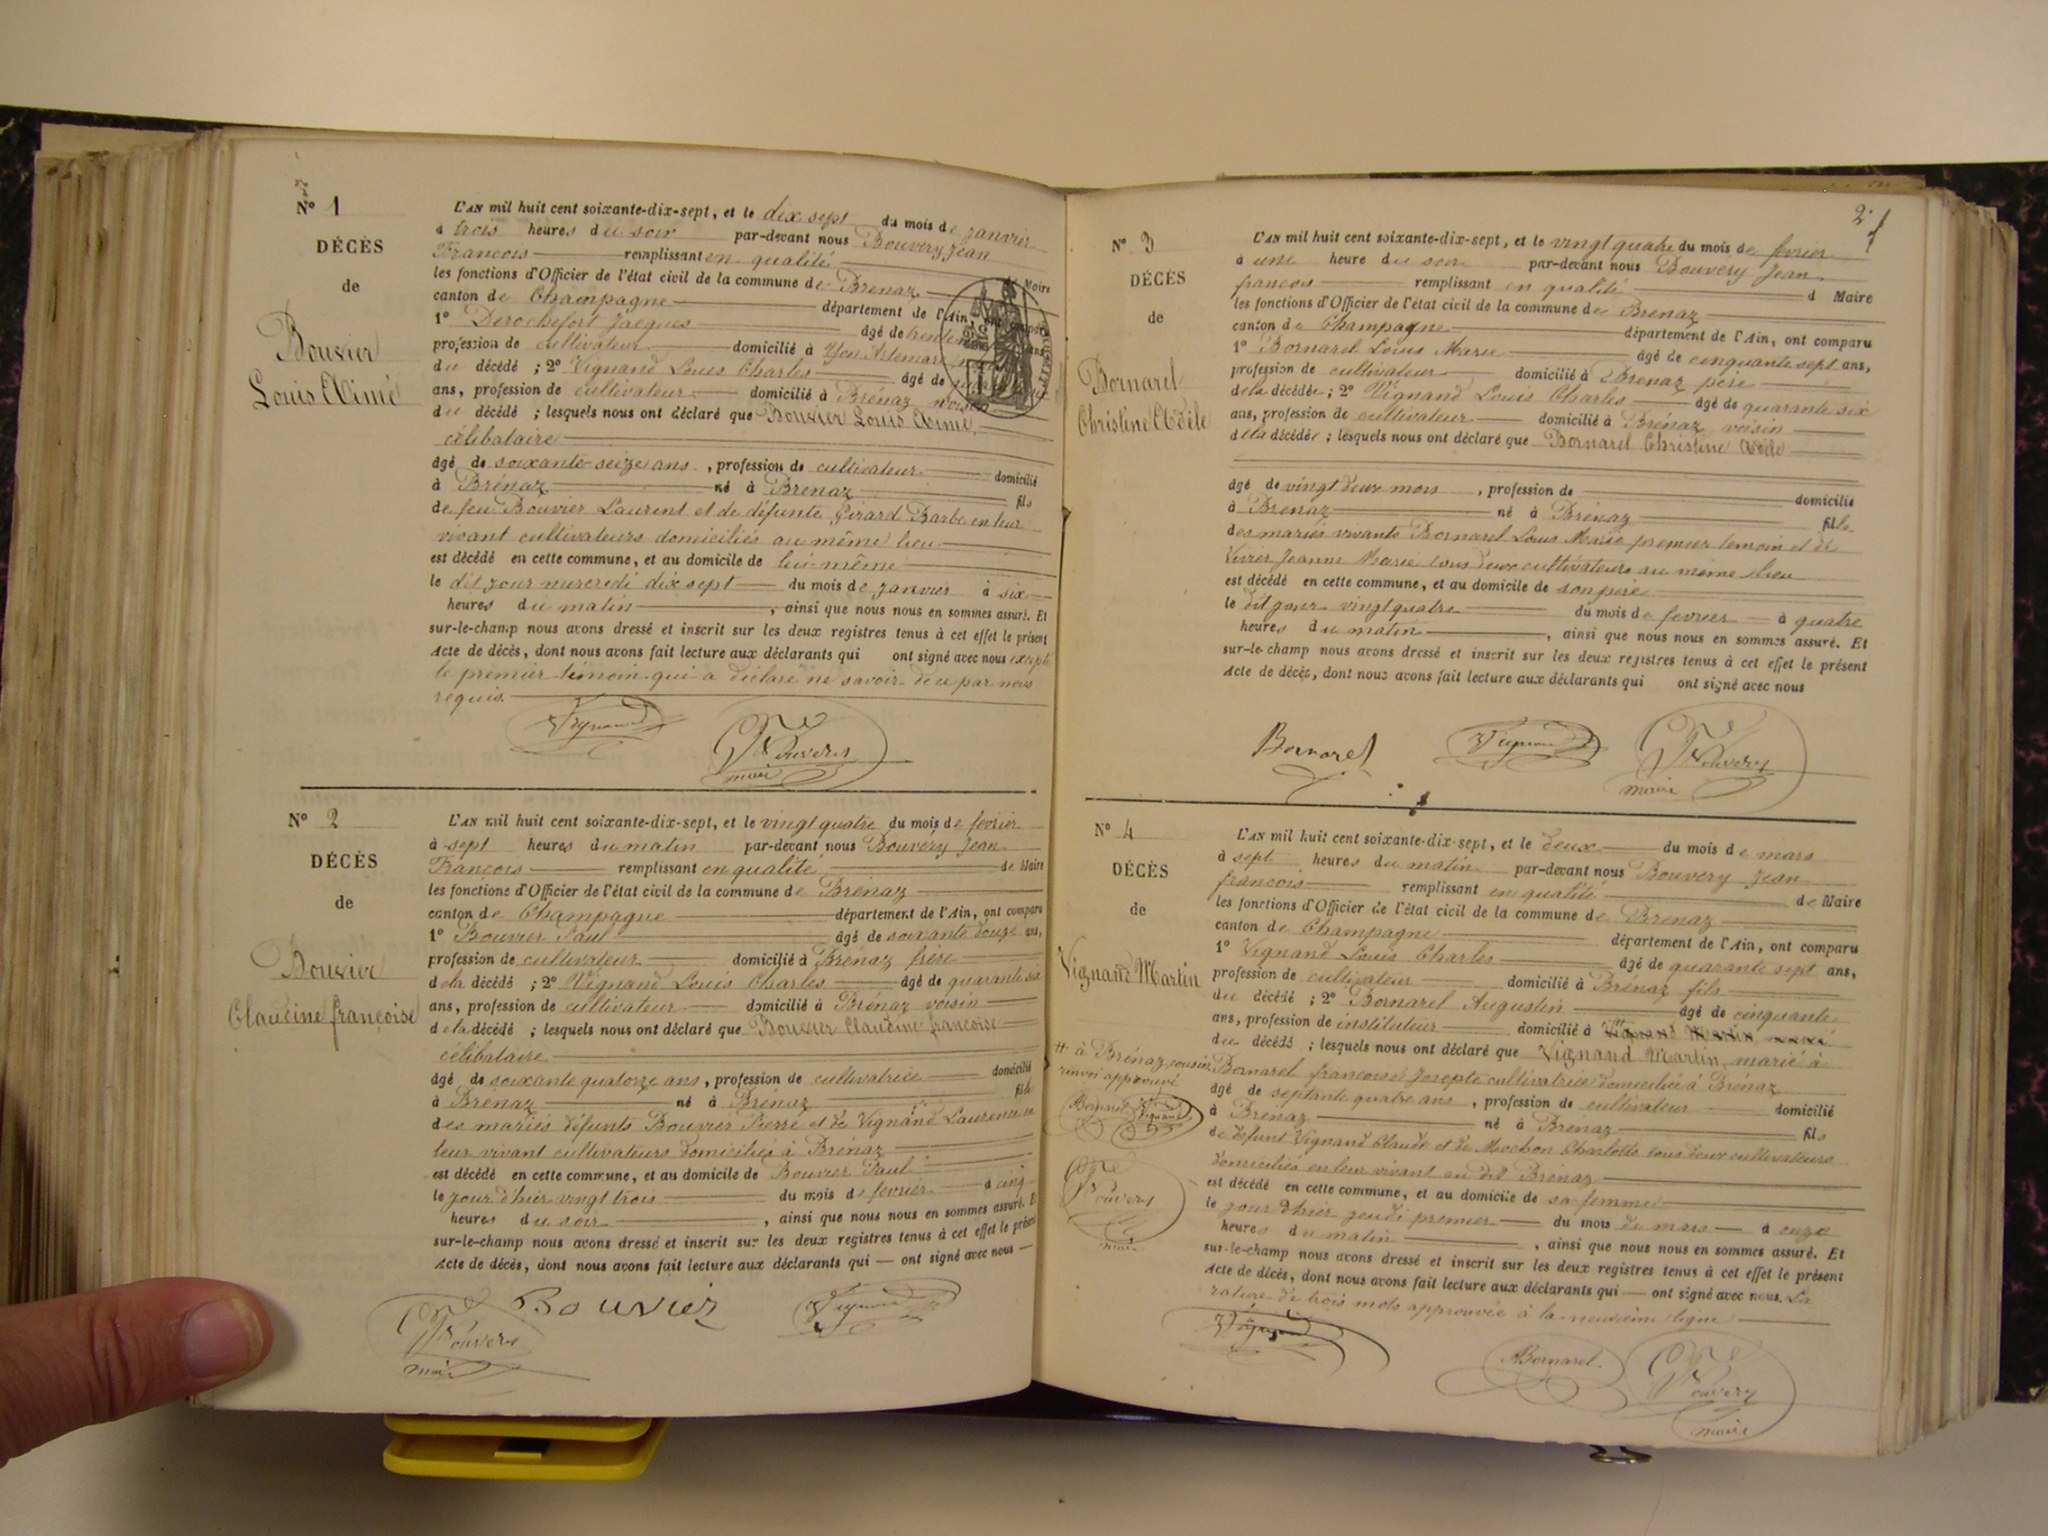 N° 1
DÉCÈS
de
Bouvier
Louis Aimé
L'AN mil huit cent soixante-dix-sept, et le dix sept du mois de janvier
à trois heures du soir par-devant nous Bouvery Jean
François remplissant en qualité de Maire
les fonctions d'Officier de l'état civil de la commune de Brénaz
canton de Champagne département de l'Ain, ont comparu
1° Derochefort Jacques âgé de ans
profession de cultivateur domicilié à Artemare
du décédé ; 2° Vignand Louis Charles âgé de
ans, profession de cultivateur domicilié à Brénaz voisin
du décédé ; lesquels nous ont déclaré que Bouvier Louis Aimé
célibataire
âgé de soixante seize ans, profession de cultivateur domicilié
à Brénaz né à Brenaz fils
de feu Bouvier Laurent et de défunte Girard Barbe en leur
vivant cultivateurs domiciliés au même lieu
est décédé en cette commune, et au domicile de lui-même
le dit jour mercredi dix sept du mois de janvier à six
heures du matin, ainsi que nous nous en sommes assuré. Et
sur-le-champ nous avons dressé et inscrit sur les deux registres tenus à cet effet le présent
Acte de décès, dont nous avons fait lecture aux déclarants qui ont signé avec nous excepté
le premier témoin qui a déclaré ne savoir de ce par nous
requis.
Vignand Bouvery
maire
N° 2
DÉCÈS
de
Bouvier
Claudine françoise
L'AN mil huit cent soixante-dix-sept, et le vingt quatre du mois de fevrier
à sept heures du matin par-devant nous Bouvery Jean
François remplissant en qualité de Maire
les fonctions d'Officier de l'état civil de la commune de Brénaz
canton de Champagne département de l'Ain, ont comparu
1° Bouvier Paul âgé de soixante douze ans,
profession de cultivateur domicilié à Brénaz frère
de la décédé ; 2° Vignand Louis Charles âgé de quarante six
ans, profession de cultivateur domicilié à Brénaz voisin
de la décédé ; lesquels nous ont déclaré que Bouvier Claudine françoise
célibataire
âgé de soixante quatorze ans, profession de cultivatrice domicilié
à Brénaz né à Brénaz fille
des mariés défunts Bouvier Pierre et de Vignand Laurence en
leur vivant cultivateurs domiciliés à Brénaz
est décédé en cette commune, et au domicile de Bouvier Paul
le jour d'hier vingt trois du mois de fevrier à cinq
heures du soir, ainsi que nous nous en sommes assuré. Et
sur-le-champ nous avons dressé et inscrit sur les deux registres tenus à cet effet le présent
Acte de décès, dont nous avons fait lecture aux déclarants qui — ont signé avec nous —
Bouvery Bouvier Vignand
maire
2
N° 3
DÉCÈS
de
Bornarel
Christine Adèle
L'AN mil huit cent soixante-dix-sept, et le vingt quatre du mois de fevrier
à une heure du soir par-devant nous Bouvery Jean
françois remplissant en qualité d Maire
les fonctions d'Officier de l'état civil de la commune de Brénaz
canton de Champagne département de l'Ain, ont comparu
1° Bornarel Louis Marie âgé de cinquante sept ans,
profession de cultivateur domicilié à Brenaz père
de la décédée ; 2° Vignand Louis Charles âgé de quarante six
ans, profession de cultivateur domicilié à Brénaz voisin
de la décédée ; lesquels nous ont déclaré que Bornarel Christine Adèle
âgé de vingt deux mois, profession de domicilié
à Brenaz né à Brénaz fille
des mariés vivants Bornarel Louis Marie premier temoin et de
Vivier Jeanne Marie tous deux cultivateurs au même lieu
est décédé en cette commune, et au domicile de son père
le dit jour vingt quatre du mois de fevrier à quatre
heures du matin, ainsi que nous nous en sommes assuré. Et
sur-le-champ nous avons dressé et inscrit sur les deux registres tenus à cet effet le présent
Acte de décès, dont nous avons fait lecture aux déclarants qui ont signé avec nous
Bornarel Vignand Bouvery
maire
N° 4
DÉCÈS
de
Vignand Martin
# à Brénaz, cousin
renvoi approuvé
Bornarel Vignand
Bouvery
maire
L'AN mil huit cent soixante-dix-sept, et le deux du mois de mars
à sept heures du matin par-devant nous Bouvery Jean
françois remplissant en qualité de Maire
les fonctions d'Officier de l'état civil de la commune de Brenaz
canton de Champagne département de l'Ain, ont comparu
1° Vignand Louis Charles âgé de quarante sept ans,
profession de cultivateur domicilié à Brénaz fils
du décédé ; 2° Bornarel Augustin âgé de cinquante
ans, profession de instituteur domicilié à Vignand Martin marié
du décédé ; lesquels nous ont déclaré que Vignand Martin, marié à
Bornarel françoise Josepte cultivatrice domiciliée à Brénaz
âgé de septante quatre ans, profession de cultivateur domicilié
à Brénaz né à Brénaz fils
de défunt Vignand Claude et de Mochon Charlotte tous deux cultivateurs
domiciliés en leur vivant au dit Brénaz
est décédé en cette commune, et au domicile de sa femme
le jour d'hier jeudi premier du mois de mars à onze
heures du matin, ainsi que nous nous en sommes assuré. Et
sur-le-champ nous avons dressé et inscrit sur les deux registres tenus à cet effet le présent
Acte de décès, dont nous avons fait lecture aux déclarants qui — ont signé avec nous. La
rature de trois mots approuvée à la neuvième ligne
Vignand ABornarel Bouvery
maire